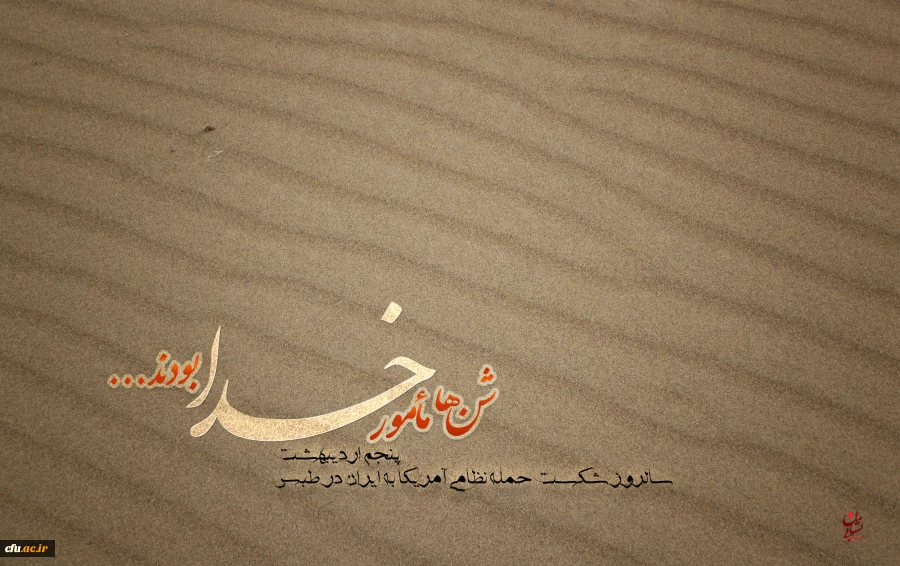 شن‌ها مأمور خدا بودند...
پنجم اردیبهشت
سالروز شکست حمله نظامی آمریکا به ایران در طبس
cfu.ac.ir